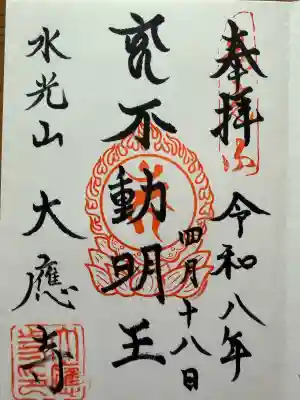 奉拝
令和八年
四月十八日
不動明王
水光山大應寺